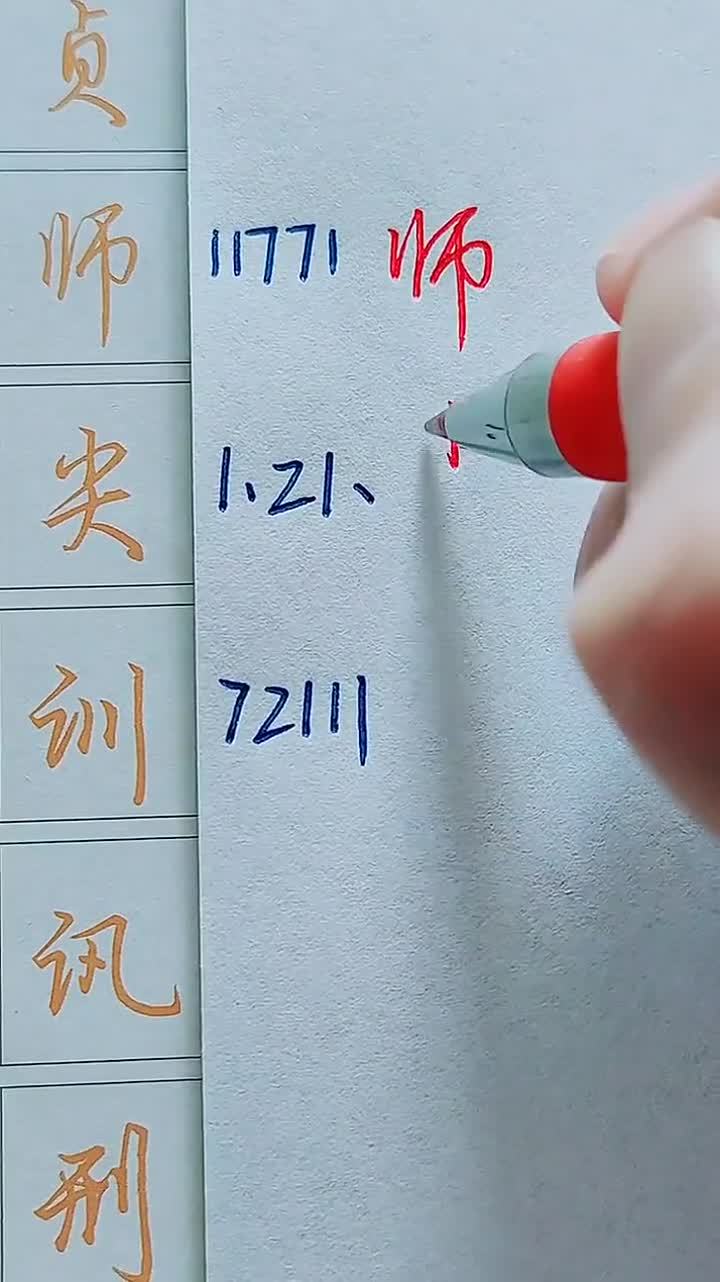 贞
师 11771 师
尖 1、21、
训 72111
讯
刑